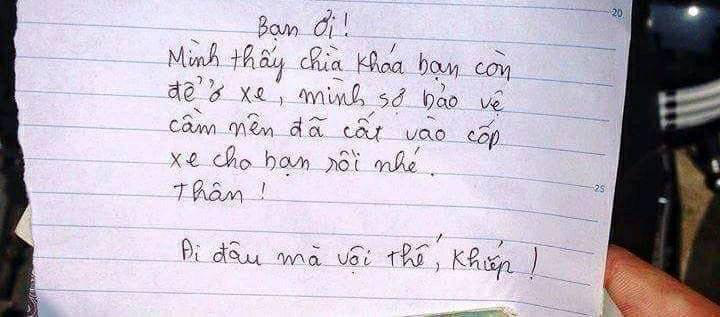 20
Bạn ơi!
Mình thấy chìa khóa bạn còn
để ở xe, mình sợ bảo vệ
cầm nên đã cất vào cốp
xe cho bạn rồi nhé.
25
Thân!
Đi đâu mà vội thế, khiếp!